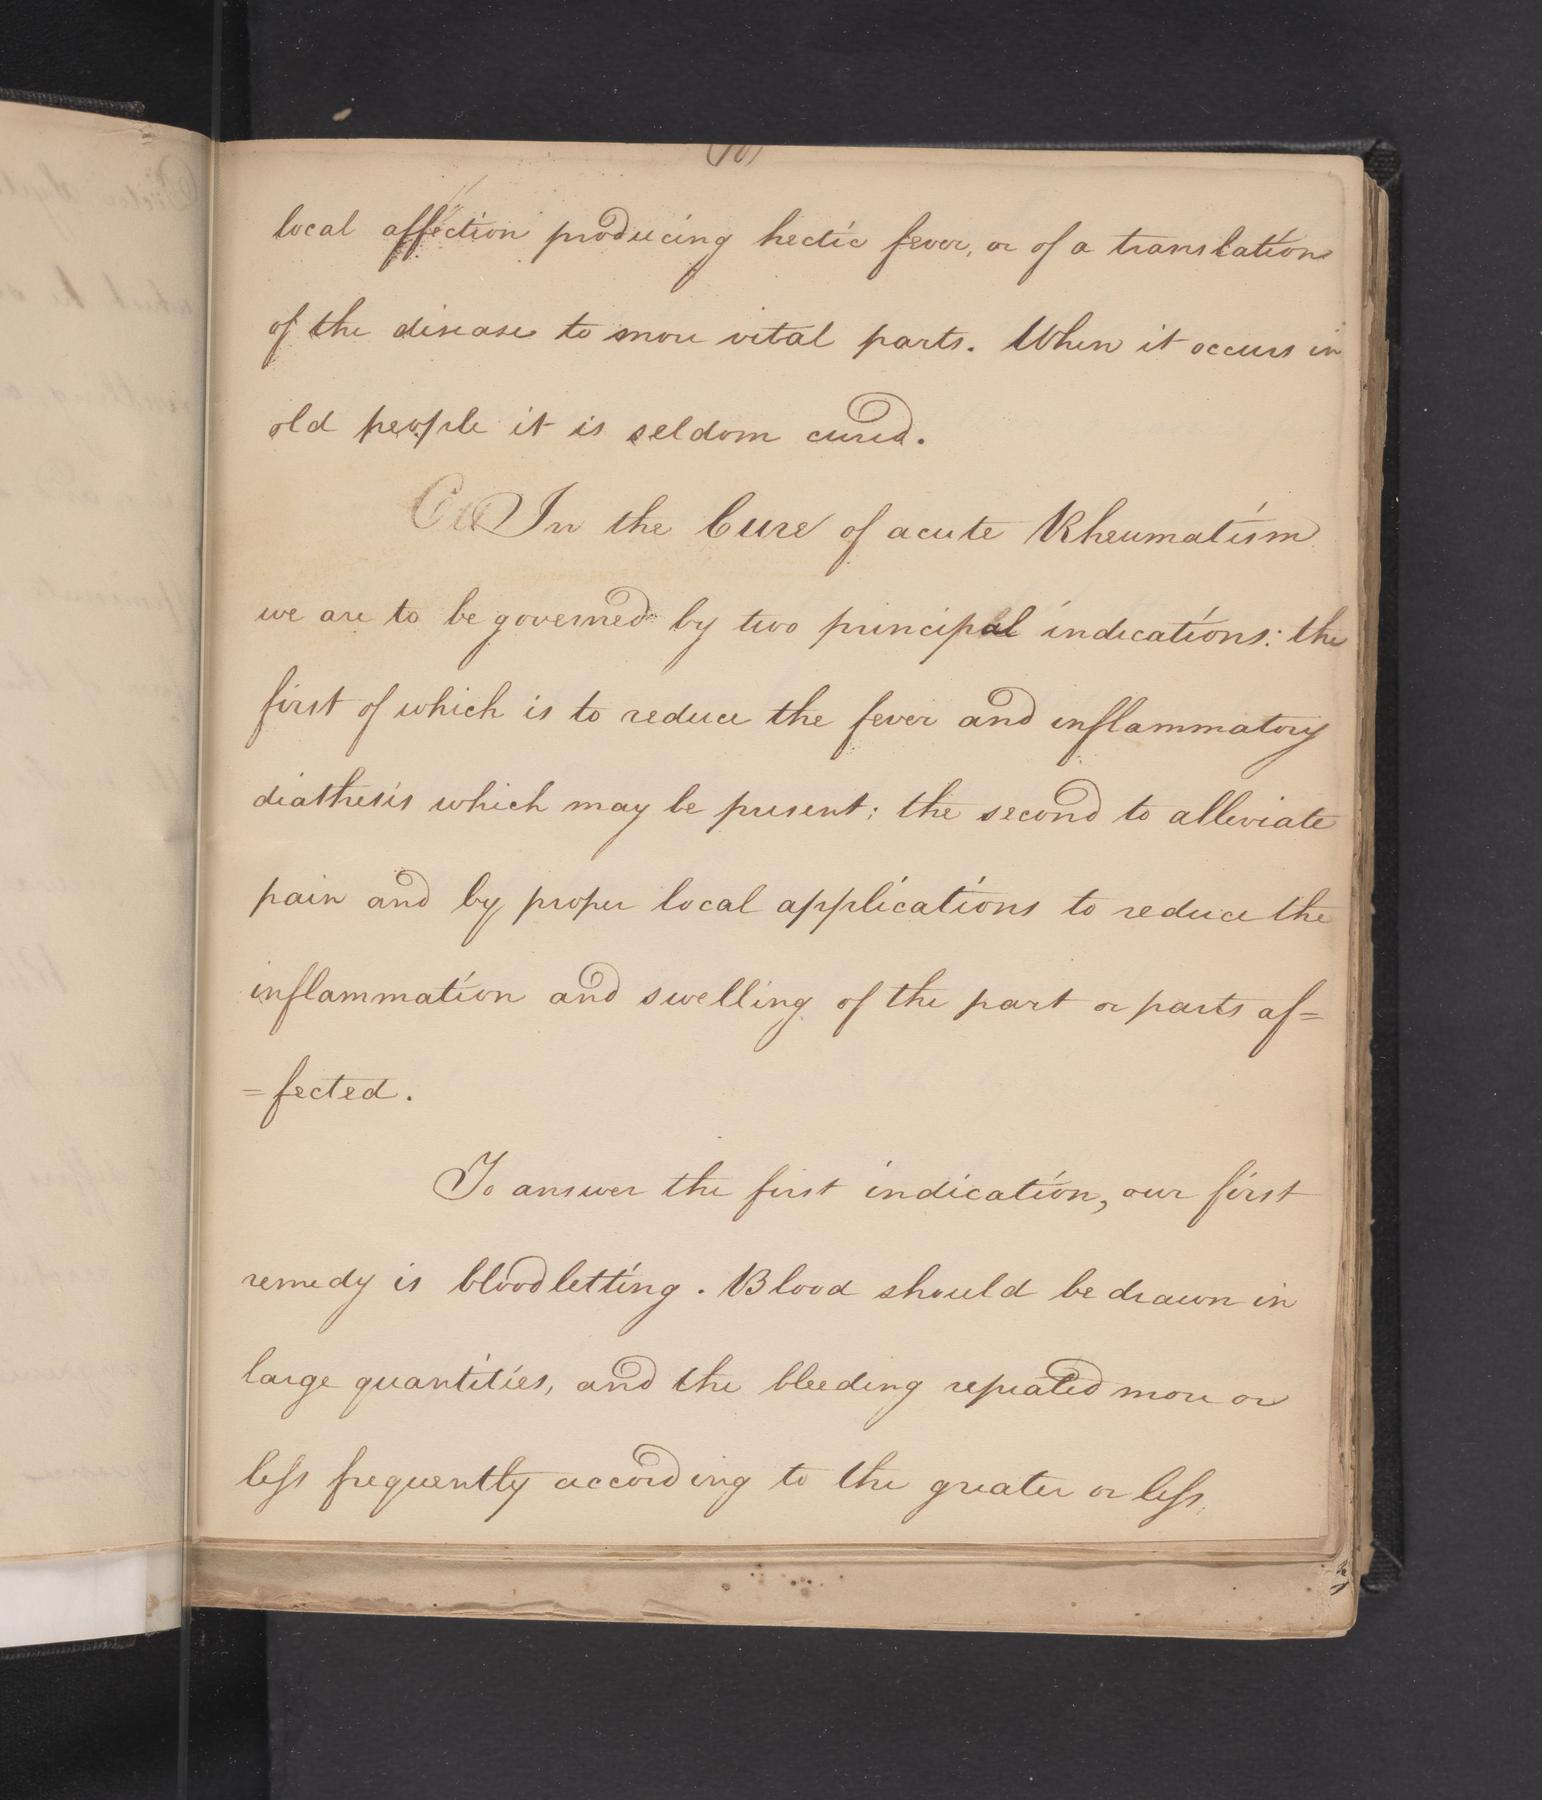 local affection producing hectic fever, or of a translation
of the disease to more vital parts. When it occurs in
old people it is seldom cured.
In the Cure of acute Rheumatism
we are to be governed by two principal indications: the
first of which is to reduce the fever and inflammatory
diathesis which may be present; the second to alleviate
pain and by proper local applications to reduce the
inflammation and swelling of the part or parts af=
=fected.
To answer the first indication, our first
remedy is bloodletting. Blood should be drawn in
large quantities, and the bleeding repeated more or
less frequently according to the greater or less